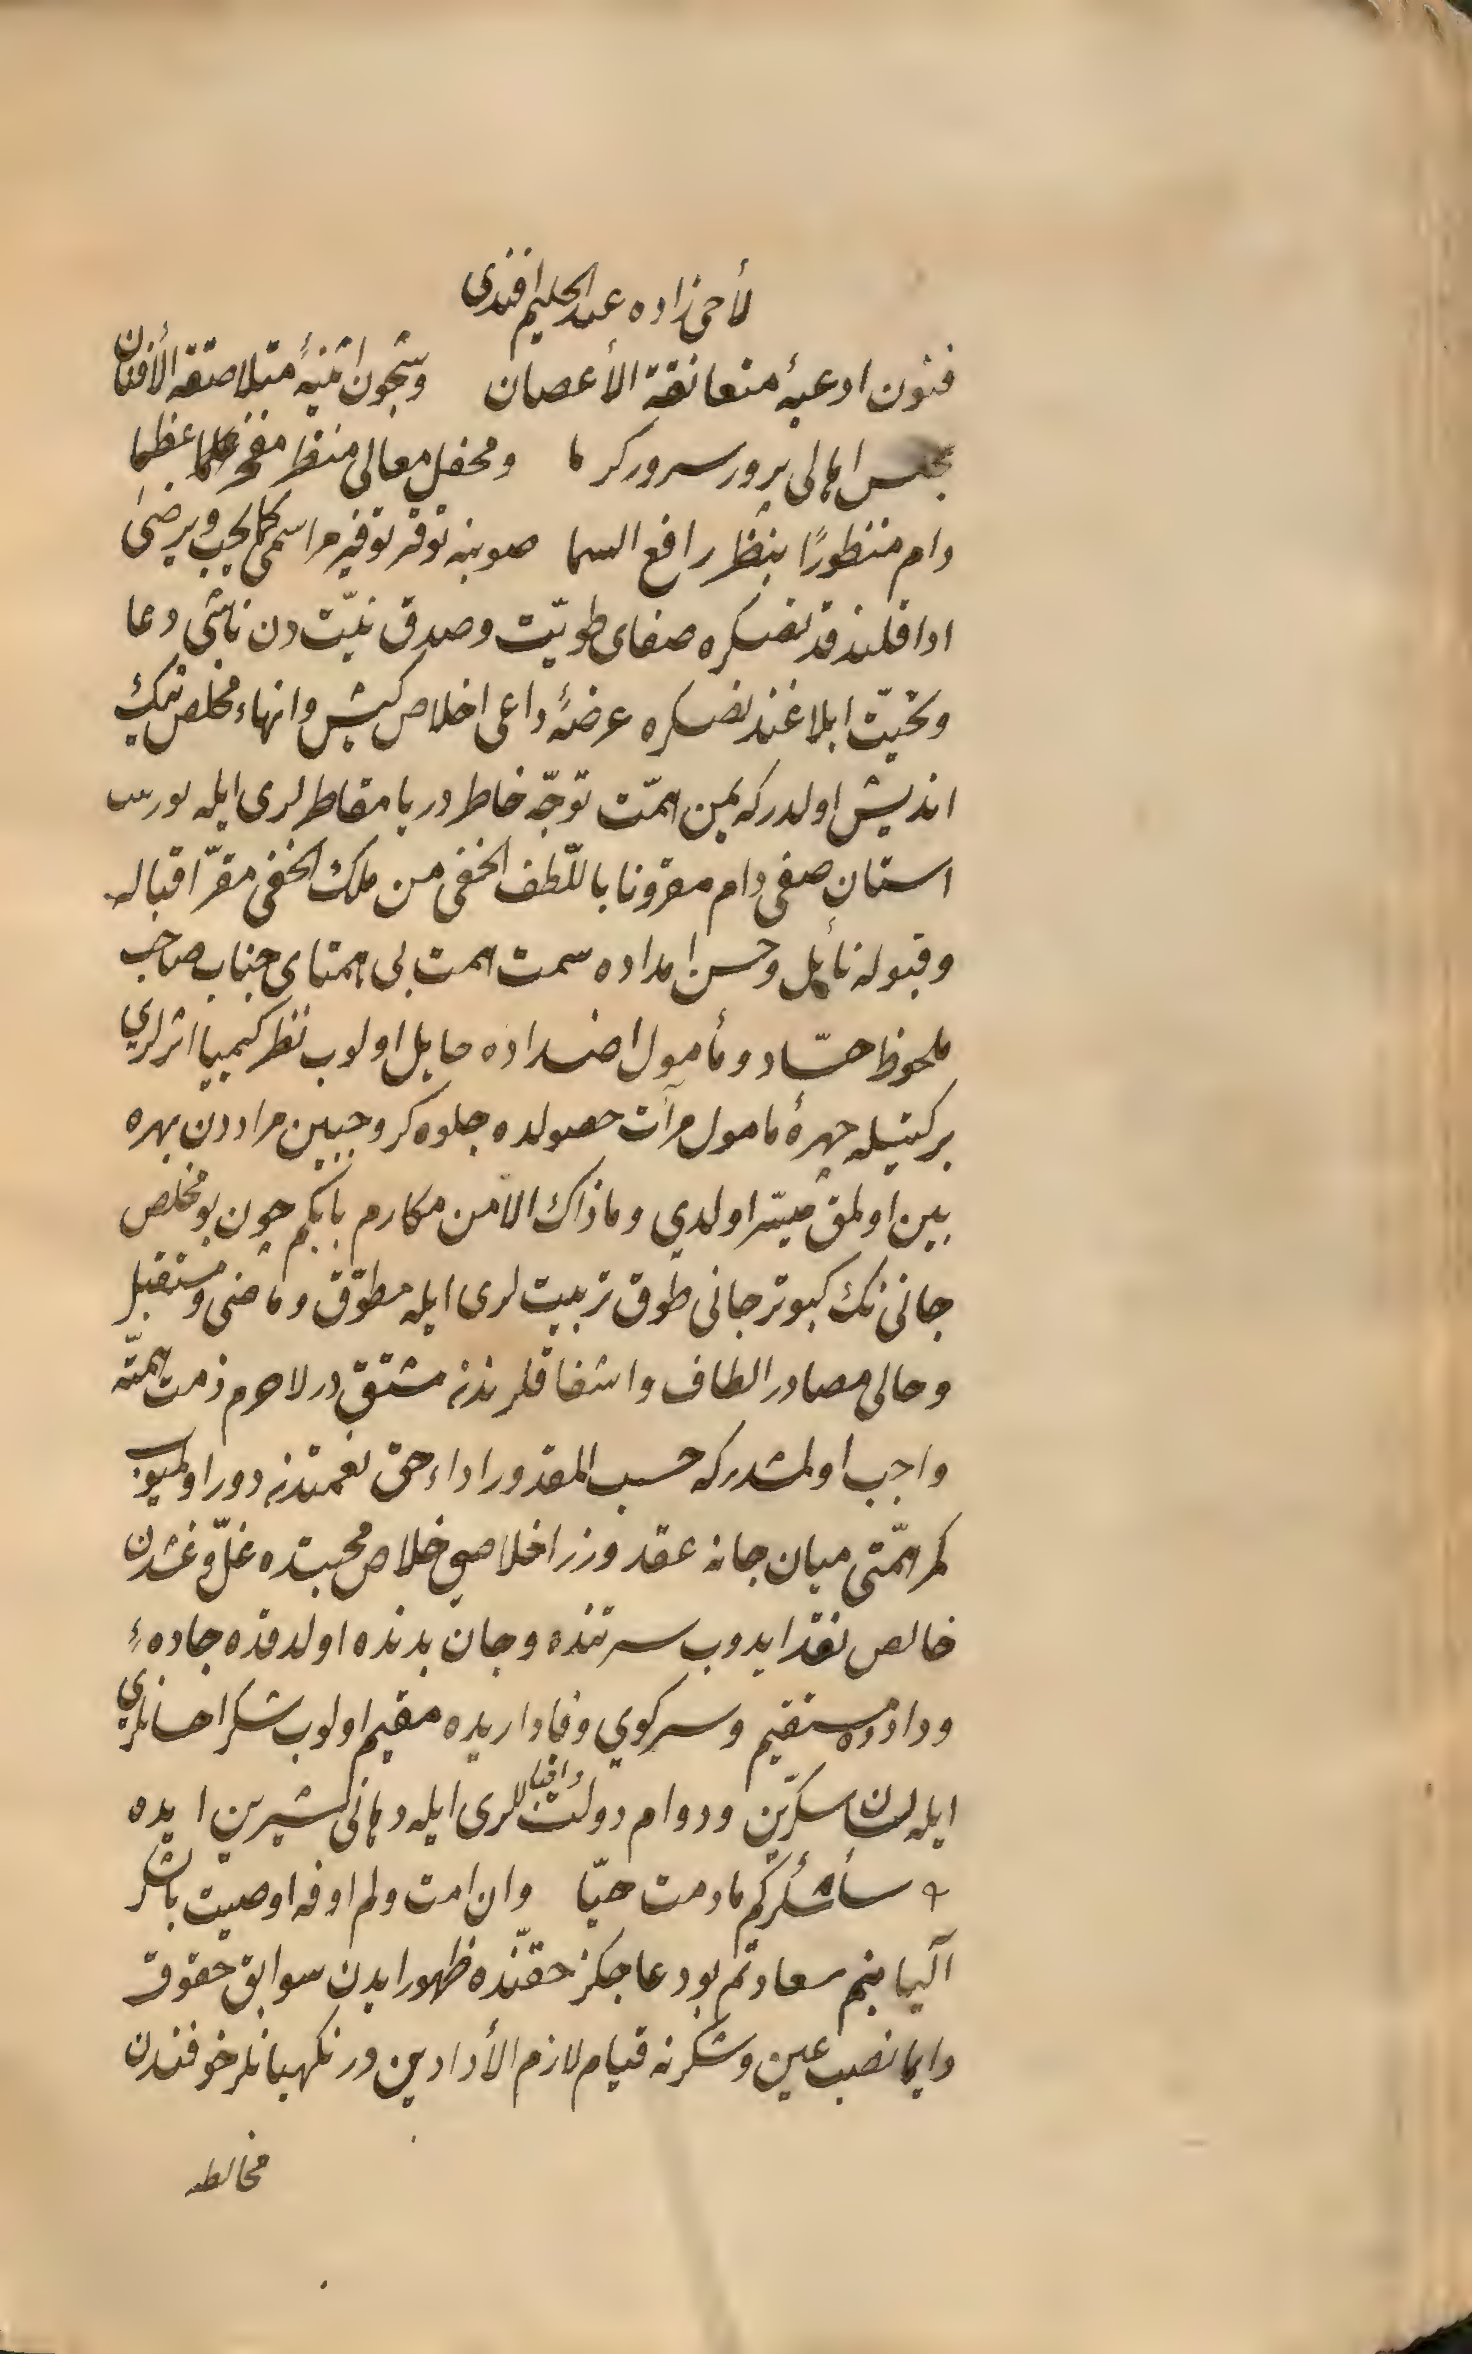 لأخى زاده عبد الحليم افندى
فنون ادعيهٔ متعانقة الأغصان وشجون اثنيهٔ متلاصقة الأفنان
مجلس اهالى پرور سرور كرما ومحفل معالى منظر مفخر علما عظما
دام منظورًا بنظر رافع السما صوبنه توقر توقير مراسمى كما يحب ويرضى
ادا قلندقدنصكره صفاى طويّت وصدق نيّت دن ناشى دعا
وتحيّت ابلاغندنصكره عرضهٔ داعى اخلاص كيش وانهاء مخلص نيك
انديش اولدركه يمن همّت توجّه خاطر دريا مقاطرلرى ايله بورسه
استان صفى دام مقرونا باللّطف الخفى من ملك الحفى مقرّ اقباله
وقبوله نائل وحسن امداده سمت همت بى همتاى جناب صاحب
ملحوظ حسّاد ومأمول اضداده حايل اولوب نظر كيميا اثرلري
بركتيله چهرهٔ مامول مرآت حصولده جلوه كر وجبين مراددن بهره
بين اولمق ميسّر اولدي وما ذاك الا من مكارم بابكم چون بو مخلص
جانى نك كبوتر جانى طوق تربيت لرى ايله مطوّق وماضى ومستقبل
وحالى مصادر الطاف واشفاقلرندنه مشتق در لاجرم ذمت همته
واجب اولمشدركه حسب المقدور اداء حق نعمتدنه دور اولميوب
كمر همّتى ميان جانه عقد وزر اخلاصى خلاص محبتده غلّ وغشدن
خالص نقد ايدوب سر تنده وجان بدنده اولدقده جادهٔ
ودادده مستقيم وسر كوي وفاداريده مقيم اولوب شكر احسانلري
ايله لسان سكرّين ودوام دولت واقباللرى ايله دهانى شيرين ايده
سأشكركم مادمت حيّا وان امت ولم اوفه اوصيت بالشكر
آليا بنم سعادتم بو دعاجكز حقنّده ظهور ايدن سوابق حقوق
دايما نصب عين وشكرنه قيام لازم الأدا دين در نكهبانلر خوفندن
مخالطه